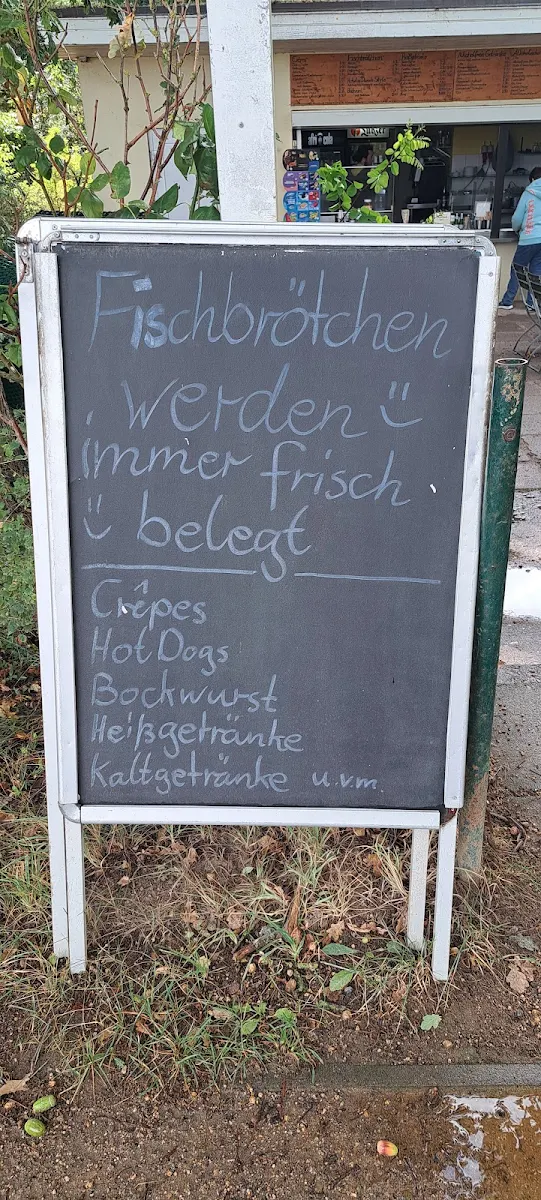 Fischbrötchen
werden
immer frisch
belegt
Crêpes
Hot Dogs
Bockwurst
Heißgetränke
Kaltgetränke u.v.m.